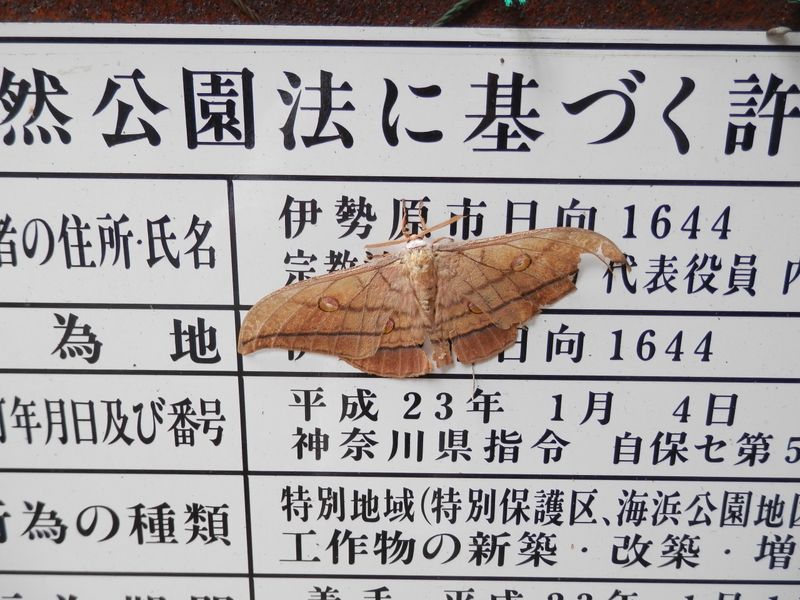 然公園法に基づく許
者の住所・氏名
伊勢原市日向1644
宗教 代表役員 内
為地
日向1644
年月日及び番号
平成23年 1月 4日
神奈川県指令 自保セ第5
為の種類
特別地域(特別保護区、海浜公園地区
工作物の新築・改築・増